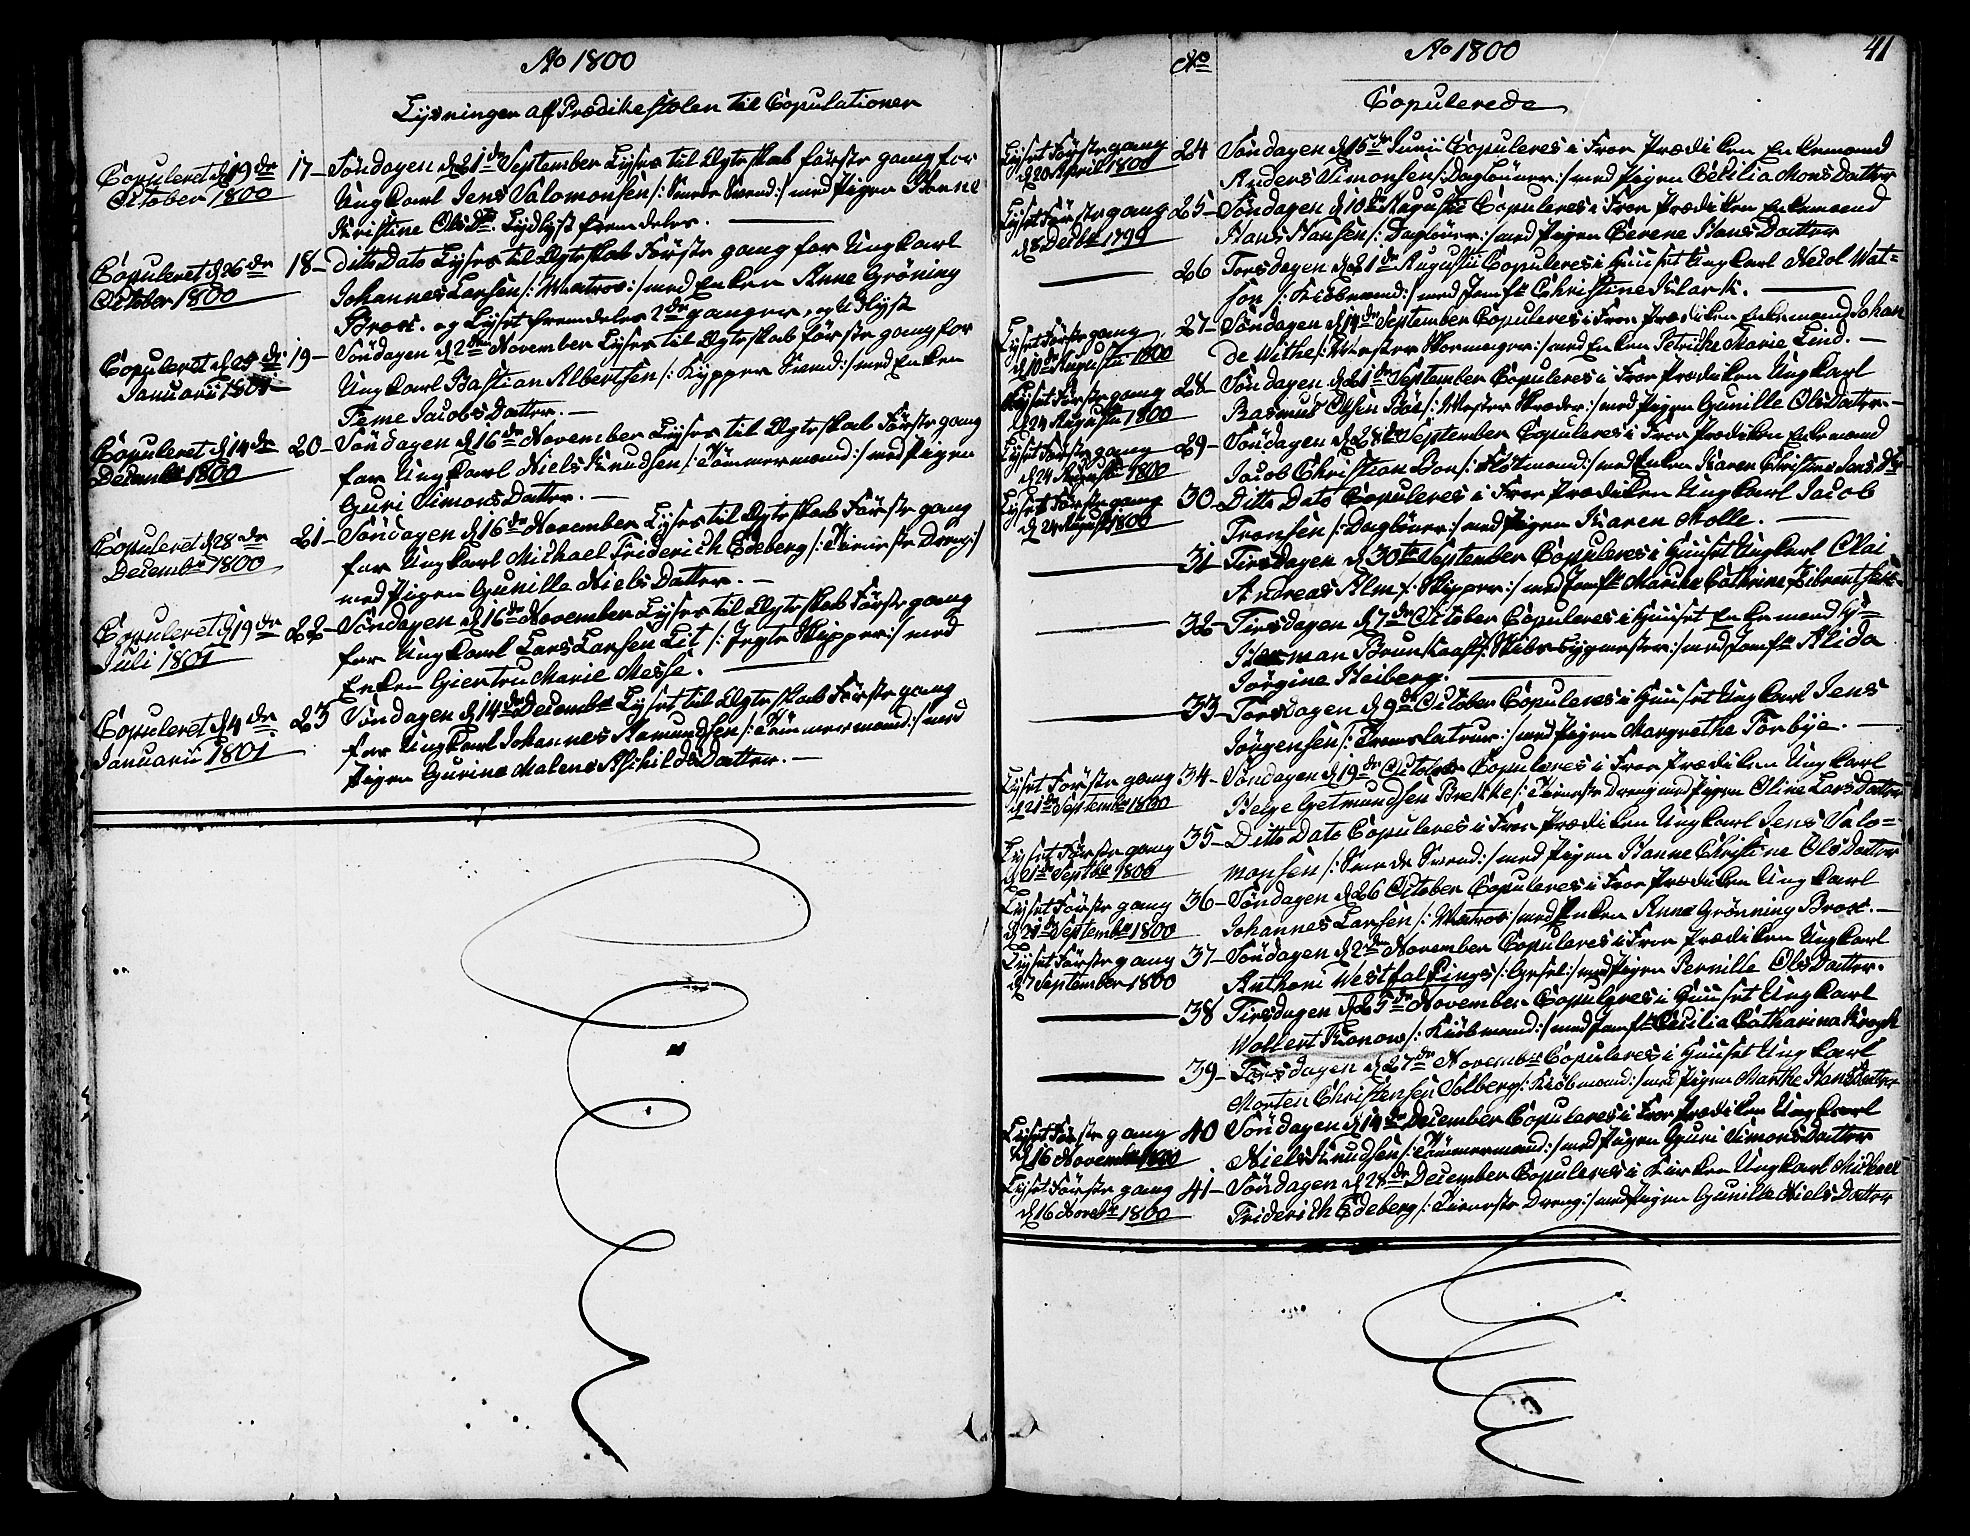 Ao 1800
Lysninger af Prædikestolen til Copulationer
Copuleret d 19de October 1800
17- Søndagen d 21de September Lyses til Ægteskab første gang for
Ungkarl Jens Salomonsen /: Smede Svend :/ med Pigen Hanne
Kristine OlsDr. Lydlyst fremdeles.
Copuleret d 26de October 1800
18- ditto Dato Lyses til Ægteskab Første gang for Ungkarl
Johannes Larsen /: Matros :/ med Enken Anne Grøning
Brose. og Lyset fremdeles 2de ganger, og udlyst
Copuleret d 25de Januarii 1801
19- Søndagen d 2den November Lyses til Ægteskab første gang for
Ungkarl Bastian Albertsen /: Kypper Svend :/ med Enken
Jacobs Datter.
Copuleret d 14de Decembr 1800
20- Søndagen d 16de November Lyses til Ægteskab Første gang
for Ungkarl Niels Knudsen /: Tømmermand :/ med Pigen
Guri Simons Datter.
Copuleret d 28de Decembr 1800
21- Søndagen d 16de November Lyses til Ægteskab Første gang
for Ungkarl Michael Friderich Edeberg /: Dreng :/
med Pigen Gunille Niels Datter.
Copuleret d 19de Juli 1801
22- Søndagen d 16de November Lyses til Ægteskab Første gang
for Ungkarl Lars Larsen Lit /: Jegte Skipper :/ med
Enken Giertru Marie Messe.
Copuleret d 4de Januarii 1801
23 Søndagen d 14de Decembr Lyset til Ægteskab Første gang
for Ungkarl Johannes Amundsen /: Tømmermand :/ med
Pigen Gurine Malene Aschilds Datter.
41
No
Ao 1800
Copulerede
Lyset Første gang d 20 April 1800
24 Søndagen d 15de Junii Copuleres i Froe Prædiken Enkemand
Anders Simonsen /: Dagløner :/ med Pigen Cecilia Mons Datter
Lyset Første gang d 8 Decbr 1799
25- Søndagen d 10de Augustii Copuleres i Froe Prædiken Enkemand
Hans Hansen /: Dagløner :/ med Pigen Berene Hans Datter
26 Torsdagen d 21de Augustii Copuleres i Huuset Ungkarl Neiol Wat=
son /: Kiøbmand :/ med Jomfr Christine Klark.
Lyset Første gang d 10de Augustii 1800
27- Søndagen d 14de September Copuleres i Froe Prædiken Enkemand Johan
de Withe /: Mester Skomager :/ med Enken Petricke Marie Lind.
Lyset Første gang d 24 Augustii 1800
28- Søndagen d 21de September Copuleres i Froe Prædiken Ungkarl
Rasmus Olsen Bøe /: Mester Skræder :/ med Pigen Gunille Ols Datter-
Lyset Første gang d 24 Augustii 1800
29- Søndagen d 28de September Copuleres i Froe Prædiken Enkemand
Jacob Christian Bon /: Flotmand :/ med Enken Karen Christine Jans Dtr
Lyset Første gang d 24 August 1800
30- Ditto Dato Copuleres i Froe Prædiken Ungkarl Jacob
Tronsen /: Dagløner :/ med Pigen Karen Molle.
31 Tirsdagen d 30te September Copuleres i Huuset Ungkarl Olai
Andreas Alm /: Skipper :/ med Jomfr Marike Cathrine
32- Tirsdagen d 7de October Copuleres i Huuset Enkemand Hr
Herman Brunkaast /: Skibsbygmester :/ med Jomfr Alida
Jørgine Heiberg.
33- Torsdagen d 9de October Copuleres i Huuset Ungkarl Jens
Jørgensen /: Translatør :/ med Pigen Margrethe Torbye.
Lyset Første gang d 21de Septembr 1800
34- Søndagen d 19de October Copuleres i Froe Prædiken Ungkarl
Helge Getmundsen Brekke /: Dreng med Pigen Oline Lars Datter
Lyset Første gang d 21de Septbr 1800
35- Ditto Dato Copuleres i Froe Prædiken Ungkarl Jens Salo=
monsen /: Smede Svend :/ med Pigen Hanne Christine Ols Datter
Lyset Første gang d 21de Septembr 1800
36- Søndagen d 26 October Copuleres i Froe Prædiken Ungkarl
Johannes Larsen /: Matros :/ med Enken Anne Grønning Brose.
Lyset Første gang d 7 September 1800
37- Søndagen d 2den November Copuleres i Froe Prædiken Ungkarl
Anthoni Westfal Pings /: Gesel :/ med Pigen Pernille Ols Datter.
38 Tirsdagen d 25de November Copuleres i Huuset Ungkarl
Wollert Konow /: Kiøbmand :/ med Jomfr Cecilia Catharina Krogh
39- Torsdagen d 27de Novembr Copuleres i Huuset Ungkarl
Morten Christensen Solberg /: Kiøbmand :/ med Pigen Marthe Hans Datter
Lyset Første gang d 16 Novembr 1800
40 Søndagen d 14de December Copuleres i Froe Prædiken Ungkarl
Niels Knudsen /: Tømmermand :/ med Pigen Guri Simons Datter
Lyset Første gang d 16 Novbr 1800
41- Søndagen d 28de December Copuleres i Kirken Ungkarl Michael
Friderich Edeberg /: Dreng :/ med Pigen Gunille Niels Datter